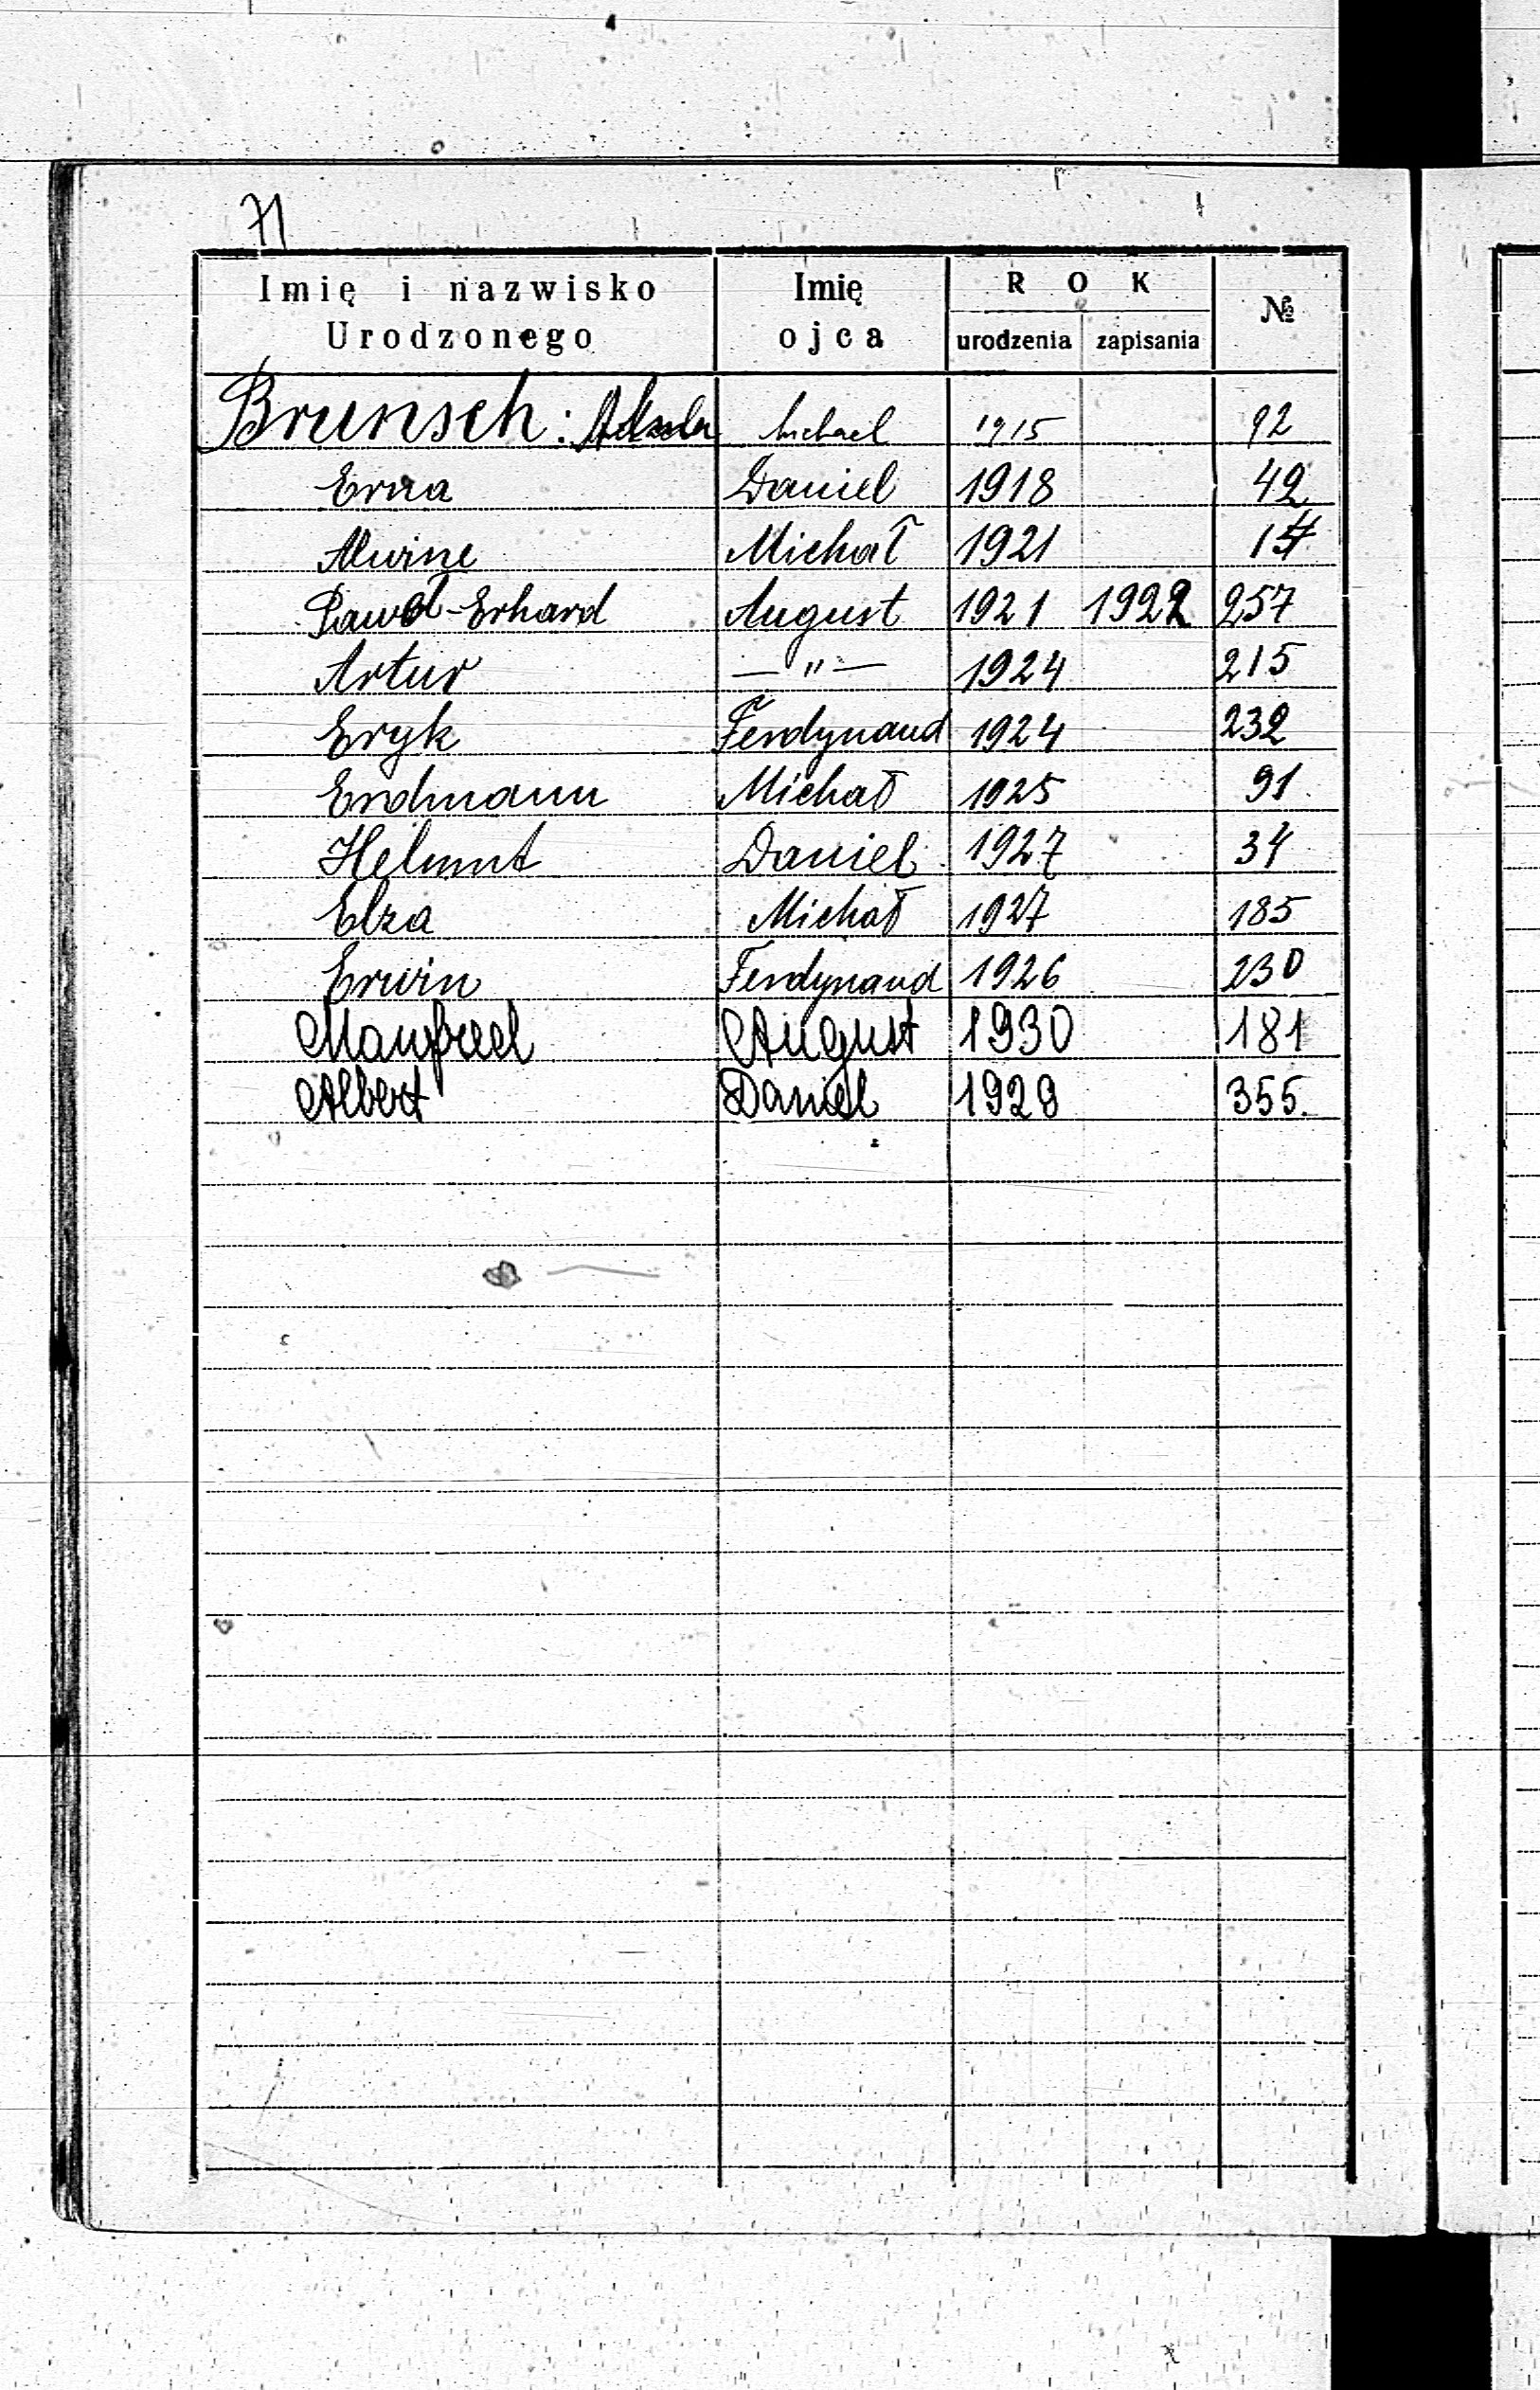 71
Imię i nazwisko Urodzonego | Imię ojca | ROK urodzenia | zapisania | №
Brunsch: | Michael | 1915 | 92
Erna | Daniel | 1918 | 42
Alwine | Michał | 1921 | 14
Paweł-Erhard | August | 1921 | 1922 | 257
Artur | — " — | 1924 | 215
Eryk | Ferdynand | 1924 | 232
Erdmann | Michał | 1925 | 91
Helmut | Daniel | 1927 | 34
Elza | Michał | 1927 | 185
Erwin | Ferdynand | 1926 | 230
Manfred | August | 1930 | 181
Albert | Daniel | 1929 | 355.